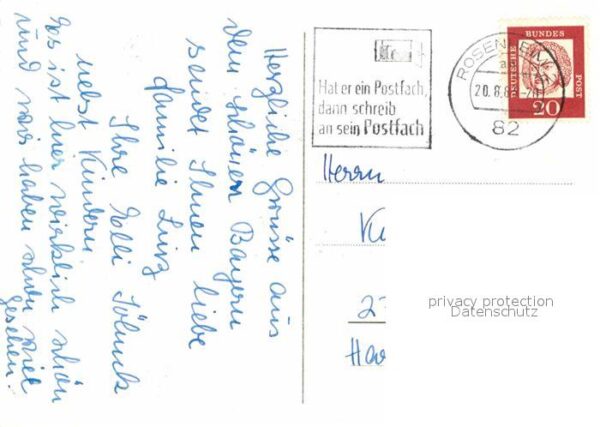 Herzliche Grüsse aus
dem schönen Bayern
sendet Ihnen liebe
Familie
Ihre Elli
nebst Kindern
Es ist hier wirklich schön
und wir haben schon viel
gesehen.
Hat er ein Postfach,
dann schreib
an sein Postfach
ROSENHEIM
a
20.8.6
82
DEUTSCHE
BUNDES
POST
20
Herrn
privacy protection
Datenschutz